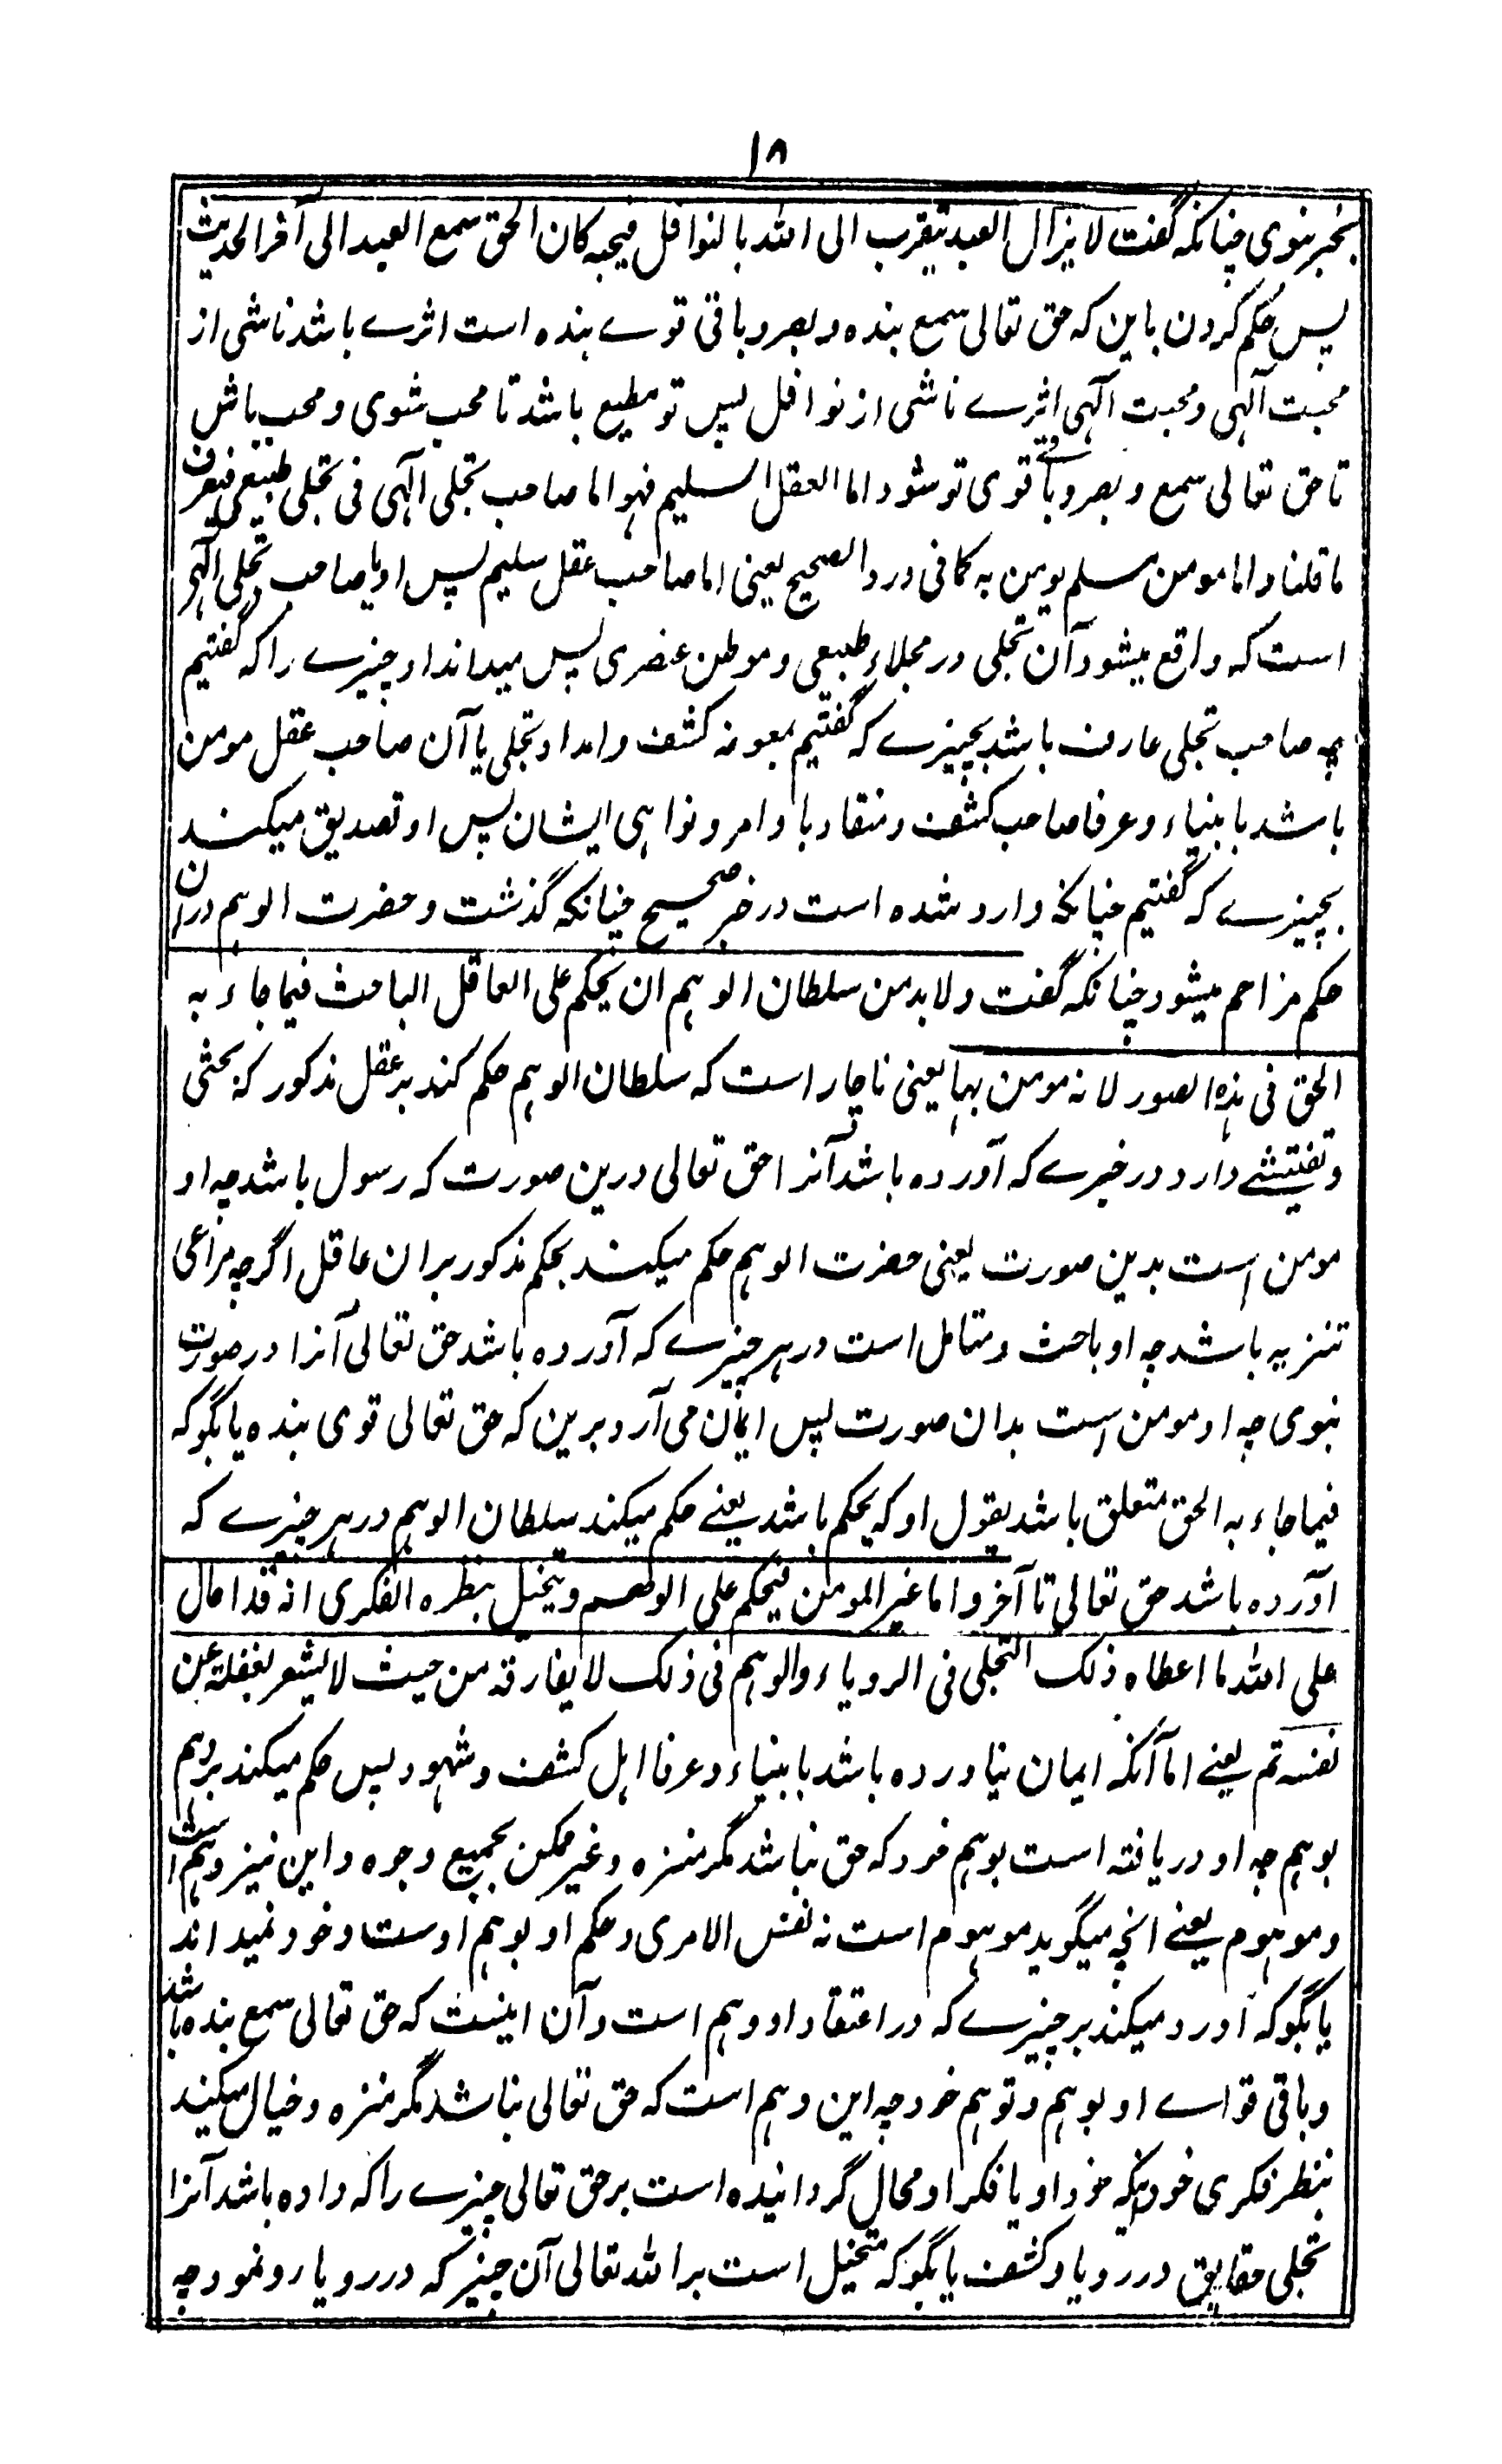 ١٨
بخبر نبوی چنانکه گفت لا یزال العبد یتقرب الی الله بالنوافل فیحبه کان الحق سمع العبد الی آخر الحدیث
پس حکم کردن باین که حق تعالی سمع بنده و بصر و باقی قوے بنده است اثرے باشد ناشی از
محبت آلهی و محبت آلهی اثرے ناشی از نوافل پس تو مطیع باشد تا محب شوی و محب باش
تا حق تعالی سمع و بصر و باقے قوی تو شود اما العقل السلیم فهو اما صاحب تجلی آلهی فی تجلی طبیعی فیعرف
ما قلنا و اما مومن مسلم یومن به کما فی ورد الصحیح یعنی اما صاحب عقل سلیم پس او یا صاحب تجلی آلهی
است که واقع میشود آن تجلی در مجلاء طبیعی و موطن عنصری پس میداند او چیزے را که گفتیم
چه صاحب تجلی عارف باشد بچیزے که گفتیم بمعونه کشف و امداد تجلی یا آن صاحب عقل مومن
باشد بابنیاء و عرفا صاحب کشف و منقاد باوامر و نواهی ایشان پس او تصدیق میکند
بچیزے که گفتیم چنانکه وارد شده است در خبر صحیح چنانکه گذشت و حضرت الوهم در ان
حکم مزاحم میشود چنانکه گفت و لابد من سلطان الوهم ان یحکم علی العاقل الباحث فیما جاء به
الحق فی هذه الصور لانه مومن بها یعنی ناچار است که سلطان الوهم حکم کند بر عقل مذکور که بحثی
و تفتیشے دارد در خبرے که آورده باشد آنرا حق تعالی درین صورت که رسول باشد چه او
مومن است بدین صورت یعنی حضرت الوهم حکم میکند بحکم مذکور بران عاقل اگرچه مراعی
تنزیه باشد چه او باحث و متامل است در هر چیزے که آورده باشد حق تعالی آنرا در صورت
نبوی چه او مومن است بدان صورت پس ایمان می آرد برین که حق تعالی قوی بنده یا بگو که
فیما جاء به الحق متعلق باشد بقول او که یحکم باشد یعنے حکم میکند سلطان الوهم در هر چیزے که
آورده باشد حق تعالی تا آخر و اما غیر المومن فیحکم علی الوهم و یتخیل بنظره الفکری انه قد احال
علی الله ما اعطاه ذلک التجلی فی الرویاء و الوهم فی ذلک لا یفارقه من حیث لا یشعر بغفلة عن
نفسه تم یعنے اما آنکه ایمان نیاورده باشد بابنیاء و عرفا اهل کشف و شهود پس حکم میکند بر وهم
بوهم چه او دریافته است بوهم خود که حق نباشد مگر منزه و غیر ممکن بجمیع وجوه و این نیز وهم است
و موهوم یعنے انچه میگوید موهوم است نه نفس الامری و حکم او بوهم اوست و خود نمیداند
یا بگو که او رد میکند بر چیزے که در اعتقاد او وهم است و آن اینست که حق تعالی سمع بنده باشد
و باقی قواے او بوهم و توهم خود چه این وهم است که حق تعالی نباشد مگر منزه و خیال میکند
بنظر فکری خود بآنکه خود او یا فکر او محال گردانیده است بر حق تعالی چیزے را که داده باشد آنرا
تجلی حقایق در رویا و کشف یا بگو که متخیل است بر الله تعالی آن چیز که در رویا رو نمود چه